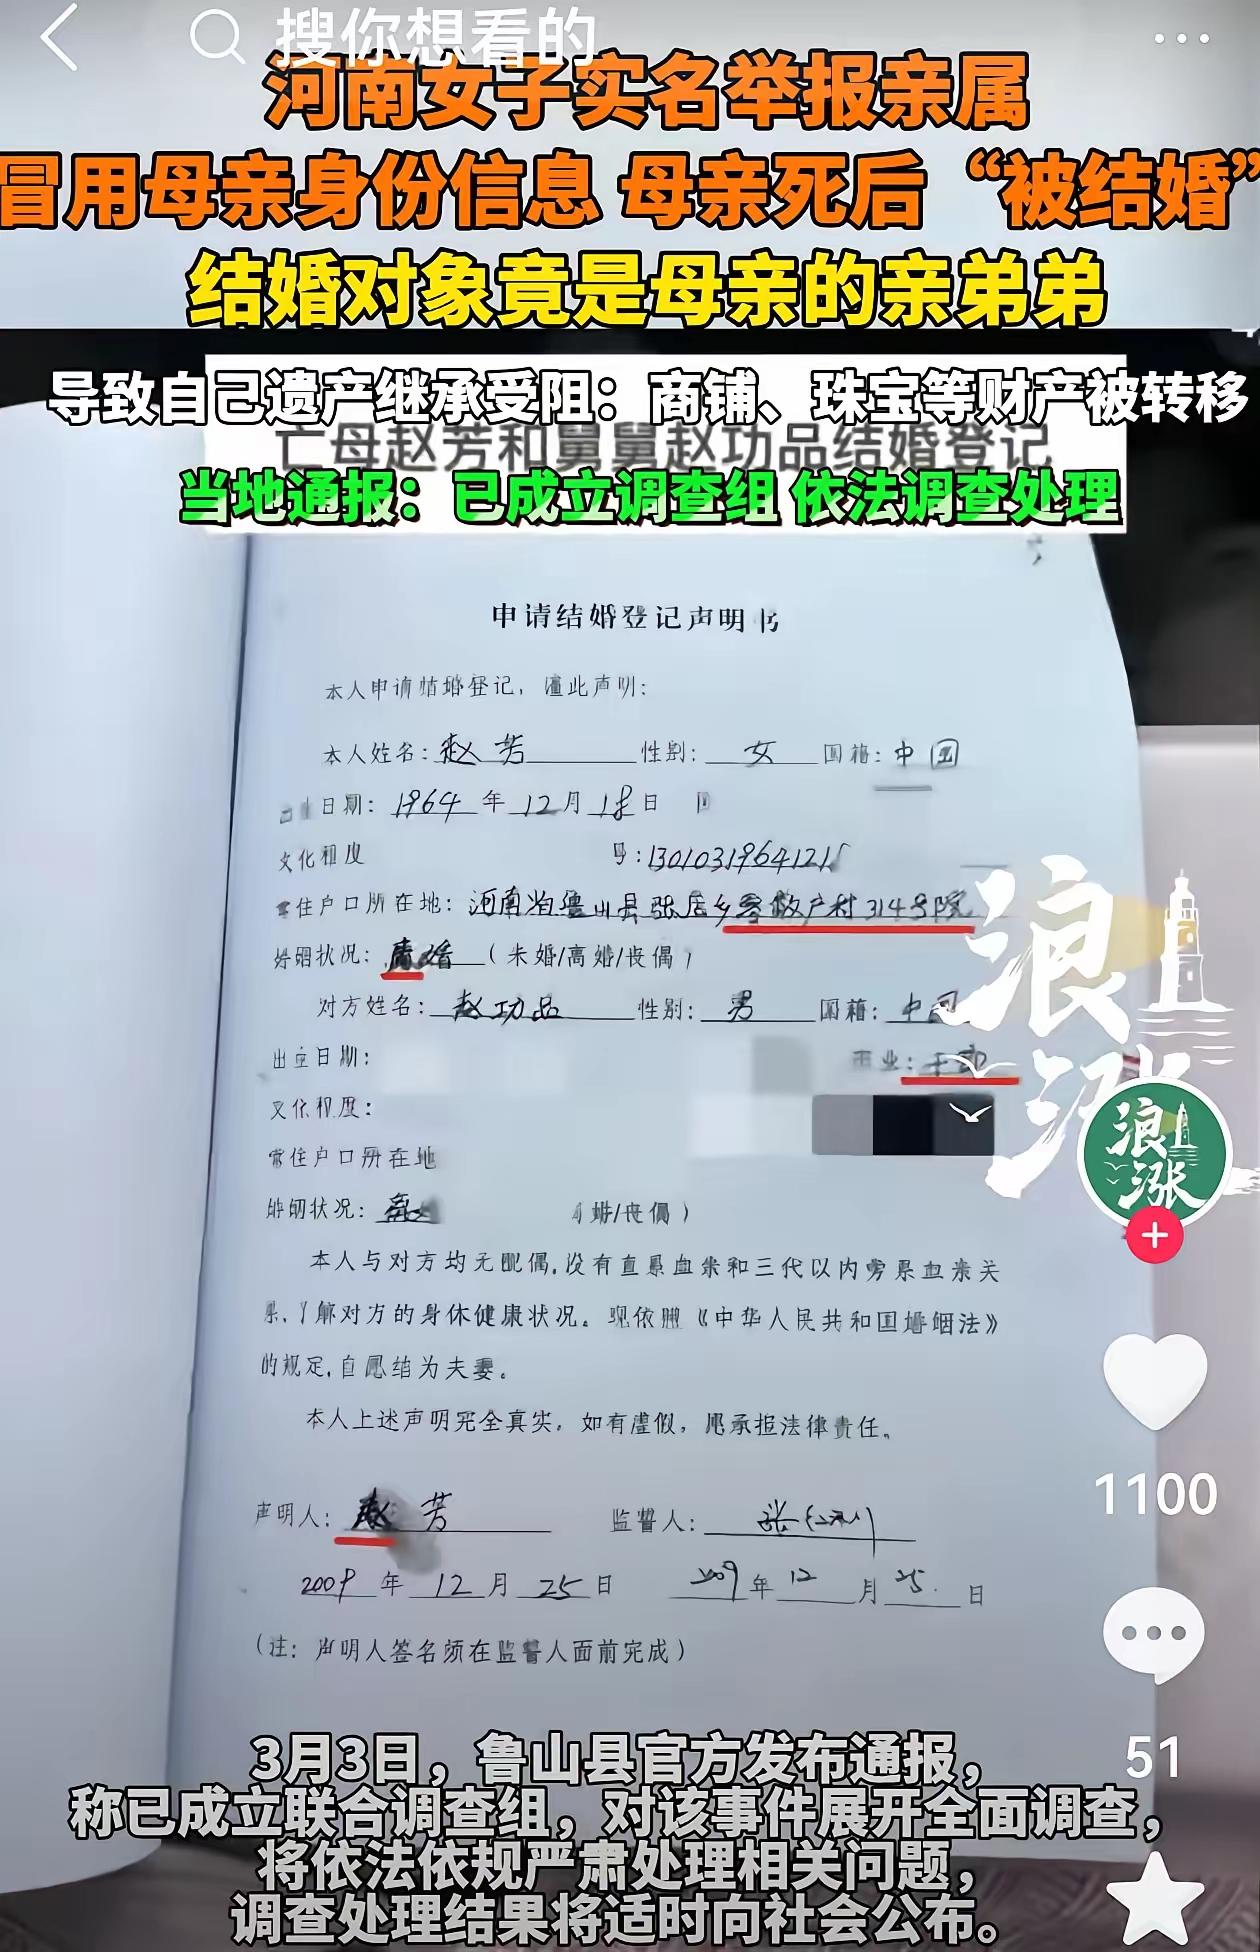 搜你想看的
河南女子实名举报亲属
冒用母亲身份信息 母亲死后“被结婚”
结婚对象竟是母亲的亲弟弟
导致自己遗产继承受阻：商铺、珠宝等财产被转移
亡母赵芳和舅舅赵功品结婚登记
当地通报：已成立调查组 依法调查处理
申请结婚登记声明书
本人申请结婚登记，谨此声明：
本人姓名：赵芳 性别：女 国籍：中国
日期：1964年12月18日
文化程度 号：1301031964121
常住户口所在地：河南省鲁山县张店乡 户村314号院
婚姻状况：离婚（未婚/离婚/丧偶）
对方姓名：赵功品 性别：男 国籍：中国
出生日期： 职业：干部
文化程度：
常住户口所在地
婚姻状况： 婚/丧偶）
本人与对方均无配偶，没有直系血亲和三代以内旁系血亲关
系，了解对方的身体健康状况。现依照《中华人民共和国婚姻法》
的规定，自愿结为夫妻。
本人上述声明完全真实，如有虚假，愿承担法律责任。
声明人：赵芳 监誓人：张
2009年12月25日 2009年12月25日
（注：声明人签名须在监誓人面前完成）
浪涨
浪涨
1100
51
3月3日，鲁山县官方发布通报，
称已成立联合调查组，对该事件展开全面调查，
将依法依规严肃处理相关问题，
调查处理结果将适时向社会公布。